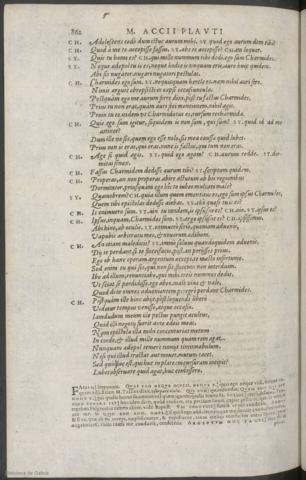 862 M. ACCII PLAVTI
CH. Adolescens cedodum istuc aurum mihi. SY. quod ego aurum dem tibi?
CH. Quod a me te accepisse fassus. SY. abs te accepisse? CH. ita loquor.
SY. Quis tu homo es? CH. qui mille nummum tibi dedi, ego sum Charmides.
SY. Neque edepol tu is es, neque hodie is unquam eris, auro huic quidem.
Abi sis nugator, nugari nugatori postulas.
CH. Charmides ego sum. SY. nequicquam hercle es, nam nihil auri fero.
Nimis argute obrepsisti in eapse occasiuncula.
Postquam ego me aurum ferre dixi, post tu factus Charmides.
Prius tu non eras, quam auri feci mentionem, nihil agis.
Proin tu te itidem ut Charmidatus es, rursum recharmida.
CH. Quis ego sum igitur, siquidem is non sum, qui sum? SY. quid id ad me
attinet?
Dum ille ne sis, quem ego esse nolo, sis mea causa quid lubes.
Prius non is eras, qui eras, nunc is factus, qui tum non eras.
CH. Age si quid agis. SY. quid ego agam? CH. aurum redde. SY. dor-
mitas senex.
CH. Fassus Charmidem dedisse aurum tibi? SY. scriptum quidem.
CH. Properas, an non properas abire actutum ab his regionibus
Dormitator, priusquam ego hic te iubeo mulcari male?
SY. Quamobrem? CH. quia illum quem ementitus es, ego sum ipsus Charmides,
Quem tibi epistolas dedisse aiebas. SY. eho quaeso tun is es?
CH. Is enimuero sum. SY. ain tu tandem, is ipsusne es? CH. aio. SY. ipsus es?
CH. Ipsus, inquam, Charmides sum. SY. ergo ipsusne es? CH. ipsissimus.
Abi hinc, ab oculis. SY. enimuero serò, quoniam aduenis,
Vapulabis arbitratu meo, & nouorum aedilium.
CH. At etiam maledicis? SY. immò saluus quandoquidem aduenis,
Dij te perdant, si te flocci facio, an perisses prius.
Ego ob hanc operam argentum accepi, te macto infortunio.
Sed enim tu qui sis, qui non sis, floccum non interduim.
Ibo ad illum, renuntiabo, qui mihi treis nummos dedit,
Vt sciat se perdidisse. ego abeo, malè viue, & vale,
Quod dij te omnes aduenientem peregrè perdant Charmides.
CH. Postquam ille hinc abijt, post loquendi liberè
Videtur tempus venisse, atque occasio.
Iamdudum meum ille pectus pungit aculeus,
Quid illi negotij fuerit ante aedeis meas.
Nam epistola illa mihi concenturiat metum
In corde, & illud mille nummum quam rem agat.
Nunquam aedepol temerè tinnijt tintinnabulum.
Nisi qui illud tractat aut mouet, mutum tacet.
Sed quis hic est, qui huc in plateam cursuram incipit?
Lubet obseruare quid agat, huc concessero.